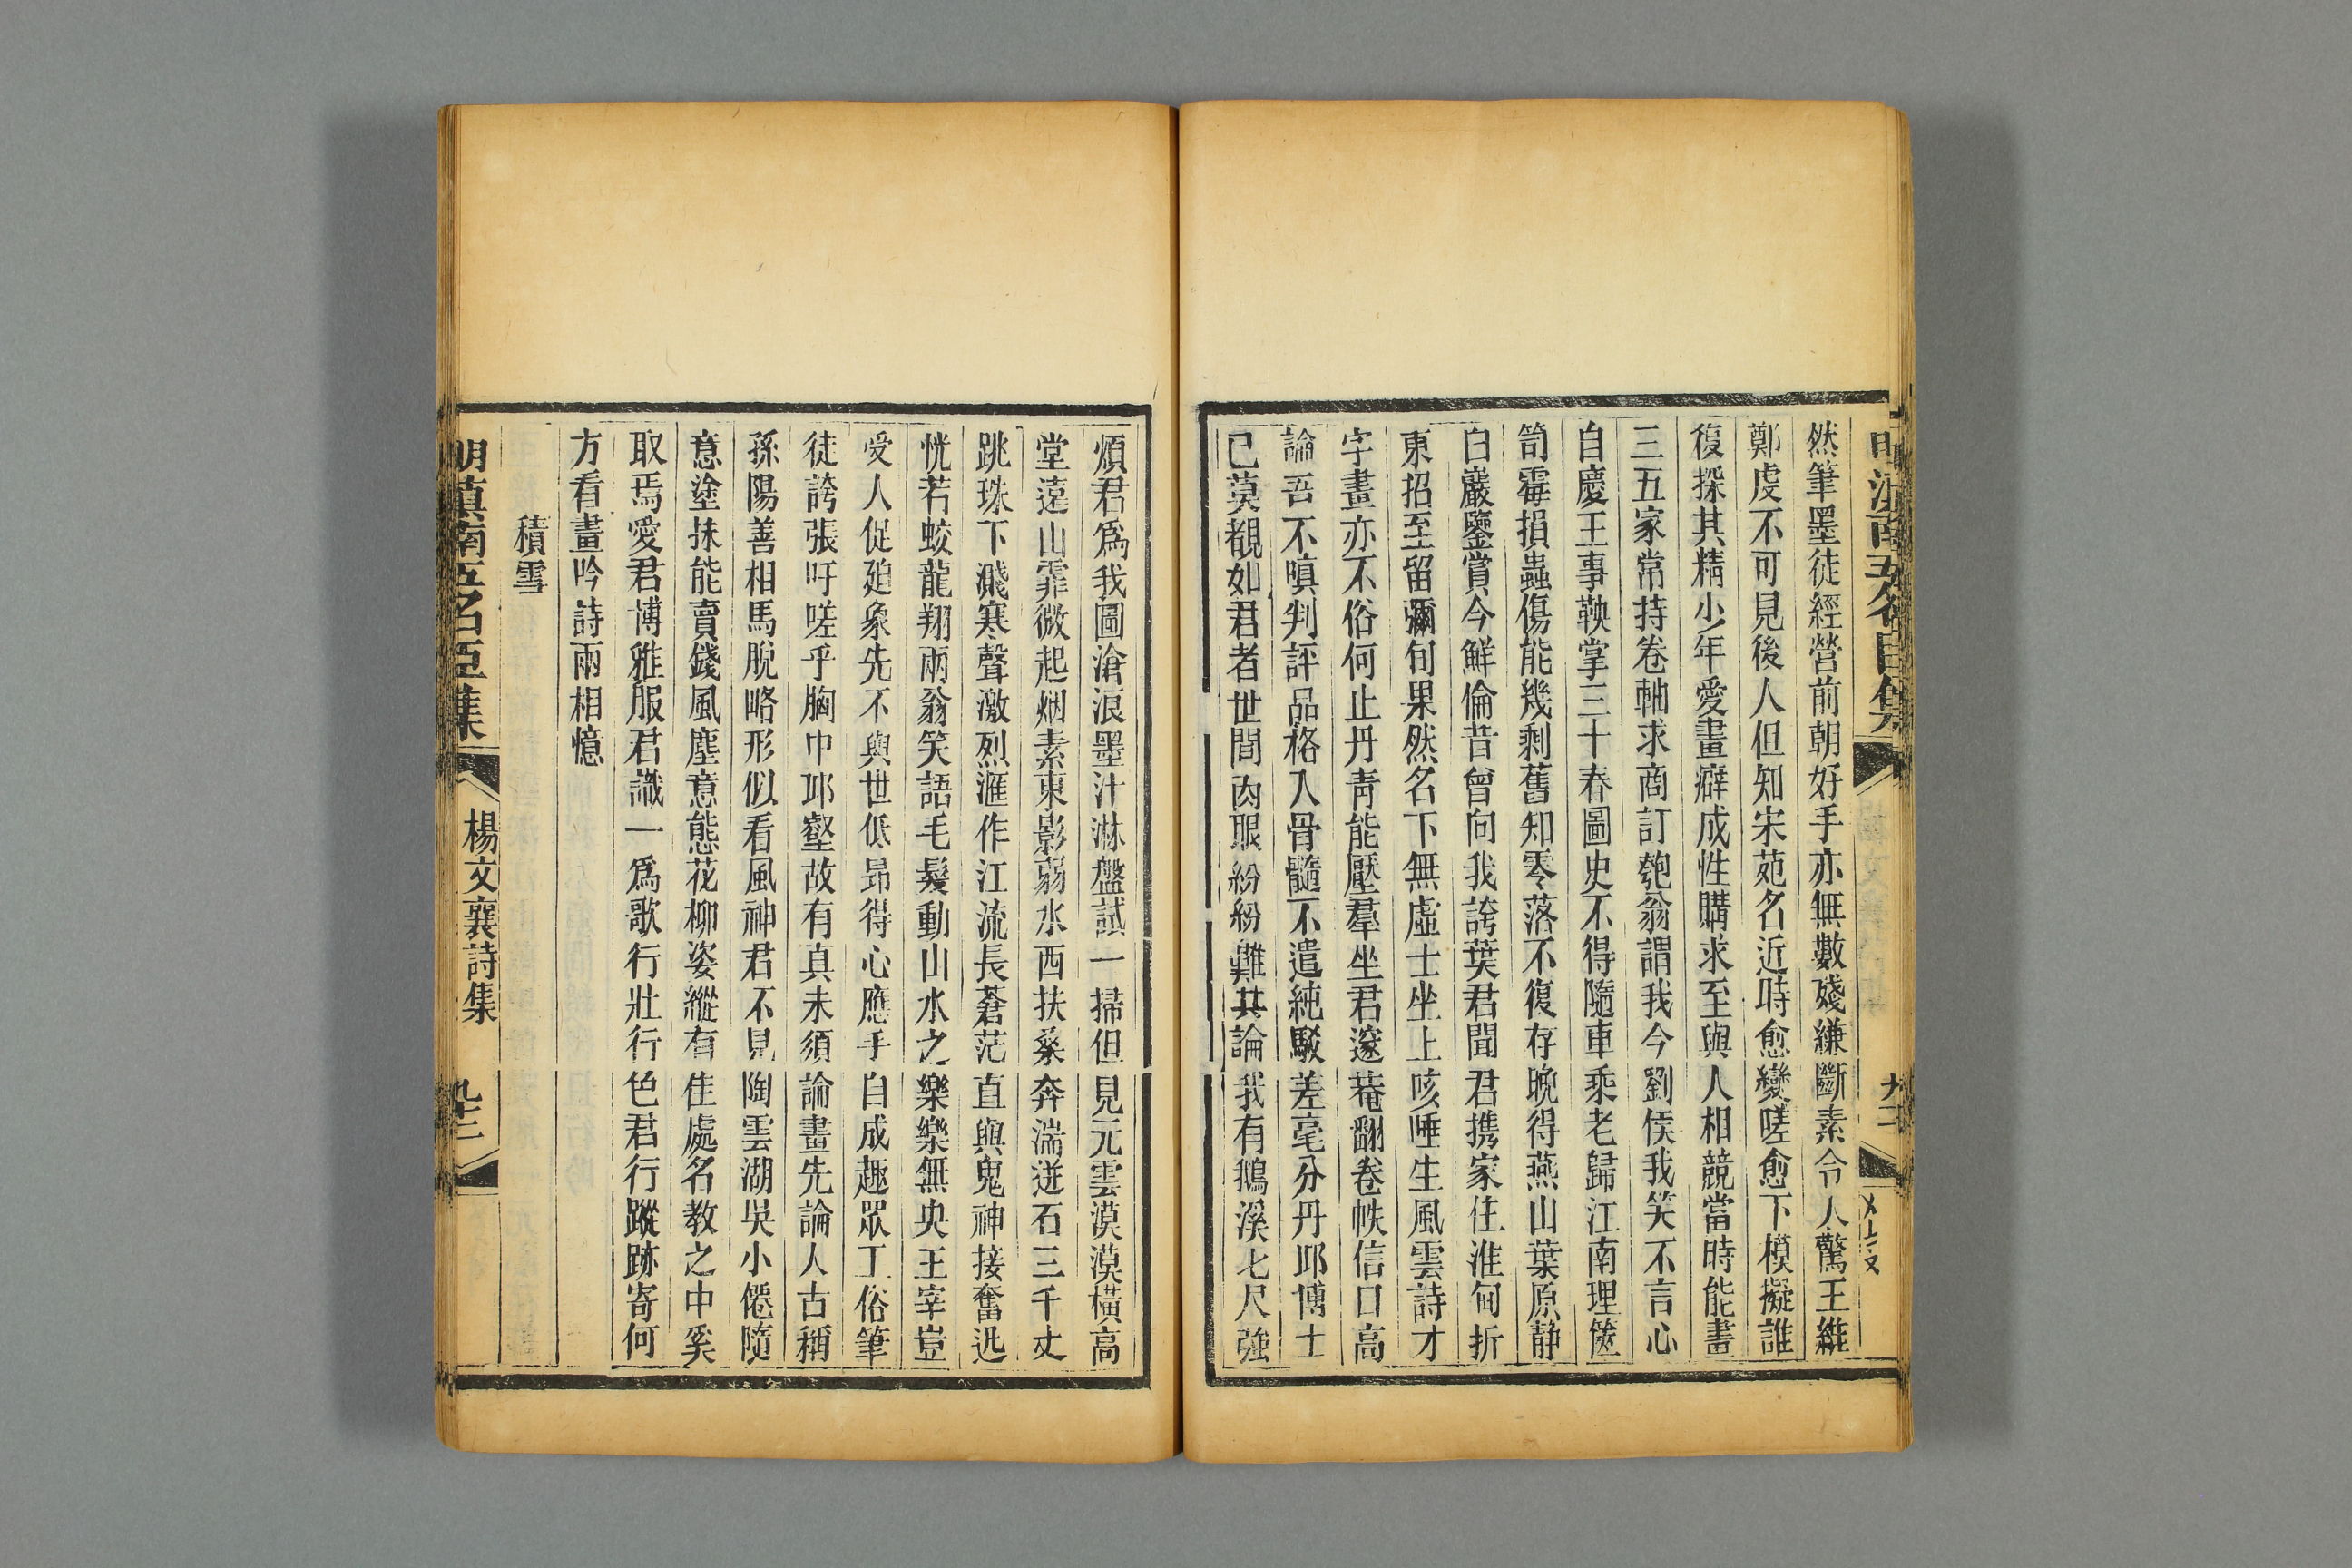 然筆墨徒經營前朝好手亦無數殘縑斷素令人驚王維
鄭虔不可見後人但知宋苑名近時愈變嗟愈下模擬誰
復探其精少年愛畫癖成性購求至與人相競當時能畫
三五家常常持卷軸求商訂匏翁謂我今劉侯我笑不言心
自慶王事鞅掌三十春圖史不得隨車乘老歸江南理篋
笥霉損蟲傷能幾剩舊知零落不復存晚得燕山葉原静
白巖鑒賞今鮮倫昔曾向我誇葉君聞君携家住淮甸折
東招至留彌旬果然名下無虛士坐上咳唾生風雲詩才
字畫亦不俗何止丹靑能壓羣坐君邃菴翻卷帙信口高
論吾不嗔判評品格入骨髓不遣純駁差毫分丹邱博士
已莫覩如君者世間肉眼紛紛難其論我有鵝溪七尺強
煩君爲我圖滄浪墨汁淋盤試一掃但見元雲漠漠橫高
堂遠山霏微起烟素東影弱水西扶桑奔湍迸石三千丈
跳珠下濺寒聲激烈滙作江流長蒼茫直與鬼神接奮迅
恍若蛟龍翔兩翁笑語毛髮動山水之樂樂無央王宰豈
受人促廹象先不與世低昻得心應手自成趣眾工俗筆
徒誇張吁嗟乎胸中邱壑故有真未須論畫先論人古稱
孫陽善相馬脫略形似看風神君不見陶雲湖吳小僊隨
意塗抹能賣錢風塵意態花柳姿縱有佳處名教之中奚
取焉愛君博雅服君識一爲歌行壯行色君行蹤跡寄何
方看畫吟詩雨相憶
積雪
明滇南五名臣集
楊文襄詩集